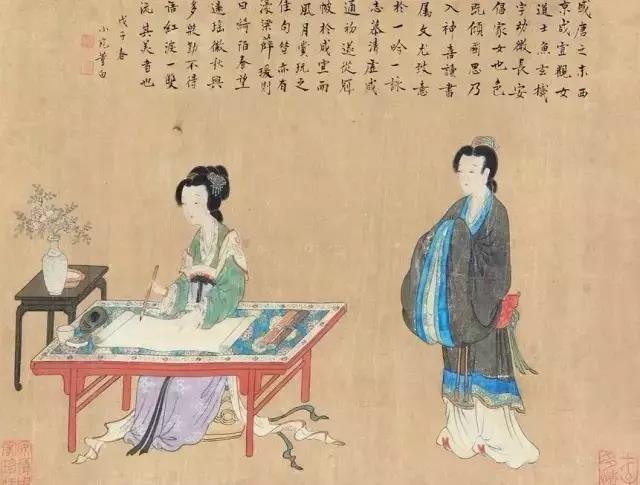 唐之末西
京咸宜觀女
道士魚玄機
字幼微長安
倡家女也色
既傾國思乃
入神喜讀書
属文尤致意
於一吟一詠
志慕清虛咸
通初遂從冠
帔於咸宜而
風月賞玩之
佳句亦有
濠梁薛則
曰綺陌春望
遠瑤徽秋興
多殷勤不得
語紅淚一雙
沅其美者也
戊子春
小宛董白